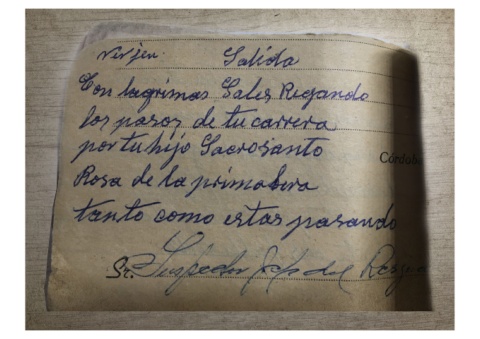 Virjen. Salida
Con lagrimas Sales Regando
los pasos de tu carrera
por tu hijo Sacrosanto
Córdoba
Rosa de la primabera
tanto como estas pasando
Sr. Inspector Jefe del